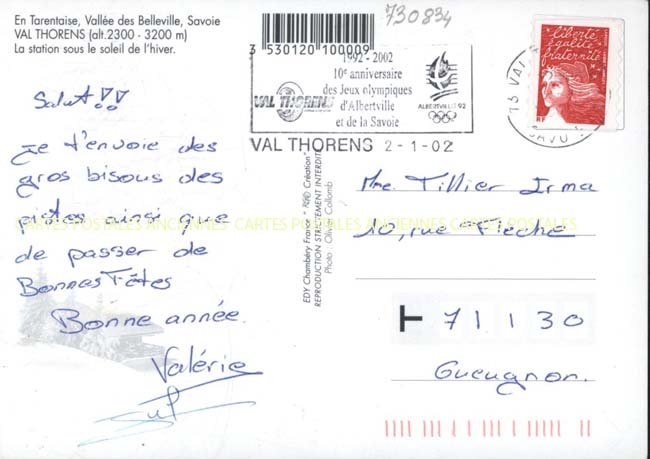 En Tarentaise, Vallée des Belleville, Savoie
VAL THORENS (alt.2300 - 3200 m)
La station sous le soleil de l'hiver.
730834
3 530120 100009
1992 - 2002
10e anniversaire
des Jeux olympiques
d'Albertville
et de la Savoie
VAL THORENS
ALBERTVILLE 92
VAL THORENS 2-1-02
73 VAL
SAVO
liberté
égalité
fraternité
RF
Salut!!
Je t'envoie des
gros bisous des
pistes ainsi que
de passer de
Bonnes Fêtes
Bonne année.
Valérie
EDY Chambéry France " Création"
REPRODUCTION STRICTEMENT INTERDITE
Photo : Olivier Collomb
Mme. Tillier Irma
10, rue Fleche
71130
Gueugnon.
CARTES POSTALES ANCIENNES CARTES POSTALES ANCIENNES CARTES POSTALES